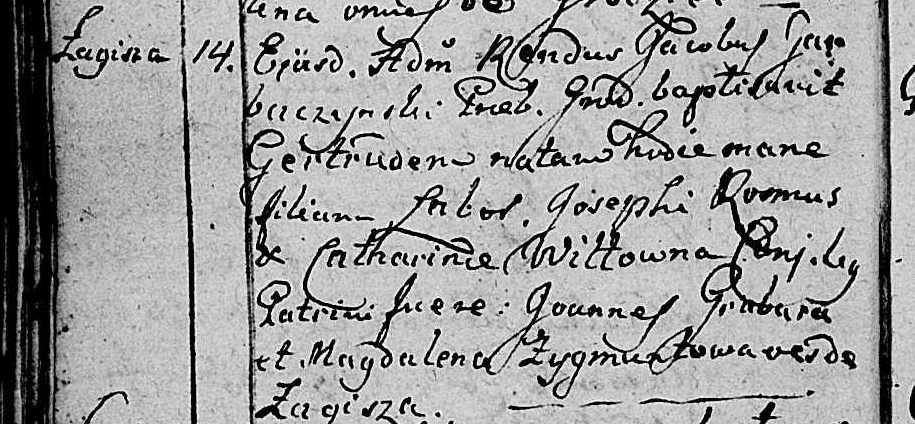 Żagisza 14. Ejusd. Adm Rendus Jacobus Gar
barczynski Praeb. Grod. baptisavit
Gertrudem natam hodie mane
filiam Labor. Josephi Rosmus
& Catharinae Wittowna Conj. leg
Patrini fuere: Joannes Grabara
et Magdalena Zygmuntowa ves de
Żagisza.